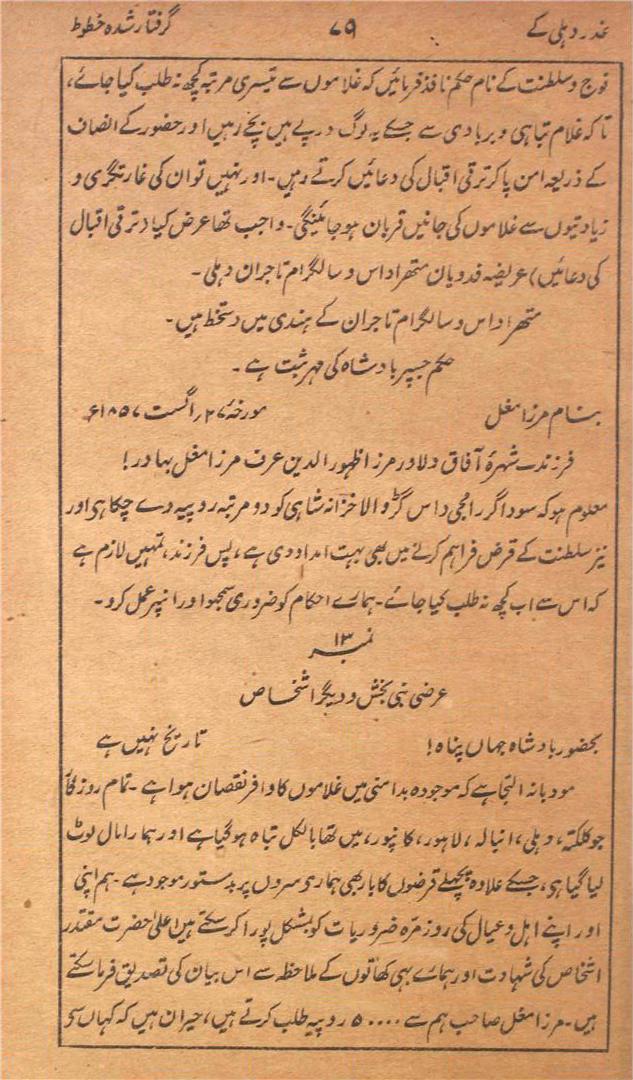 غدر دہلی کے ۷۹ گرفتار شدہ خطوط
فوج و سلطنت کے نام حکم نافذ فرمائیں کہ غلاموں سے تیسری مرتبہ کچھ نہ طلب کیا جائے،
تاکہ غلام تباہی و بربادی سے جسکے یہ لوگ درپے ہیں بچے رہیں اور حضور کے انصاف
کے ذریعہ امن پا کر ترقی اقبال کی دعائیں کرتے رہیں۔ اور نہیں تو ان کی غارتگری و
زیادتیوں سے غلاموں کی جانیں قربان ہو جائینگی۔ واجب تھا عرض کیا (ترقی اقبال
کی دعائیں) عریضہ فدویان متھرا داس و سالگرام تاجران دہلی۔
متھرا داس و سالگرام تاجران کے ہندی میں دستخط ہیں۔
حکم جسپر بادشاہ کی مہر ثبت ہے۔
بنام مرزا مغل مورخہ ۲۷؍ اگست ۱۸۵۷ء
فرزند شہرۂ آفاق دلاور مرزا ظہور الدین عرف مرزا مغل بہادر!
معلوم ہو کہ سوداگر رامجی داس گڑوالا خزانہ شاہی کو دو مرتبہ روپیہ دے چکا ہی اور
نیز سلطنت کے قرض فراہم کرنے میں بھی بہت امداد دی ہے، پس فرزند، تمہیں لازم ہے
کہ اس سے اب کچھ نہ طلب کیا جائے۔ ہمارے احکام کو ضروری سمجھو اور انپر عمل کرو۔
نمبر ۱۳
عرضی نبی بخش و دیگر اشخاص
بحضور بادشاہ جہاں پناہ! تاریخ نہیں ہے
مودبانہ التجا ہے کہ موجودہ بدامنی میں غلاموں کا وافر نقصان ہوا ہے۔ تمام روزگار
جو کلکتہ، دہلی، انبالہ، لاہور، کانپور، میں تھا بالکل تباہ ہو گیا ہے اور ہمارا مال لوٹ
لیا گیا ہی، جسکے علاوہ پچھلے قرضوں کا بار بھی ہماری سروں پر بدستور موجود ہے۔ ہم اپنی
اور اپنے اہل و عیال کی روزمرہ ضروریات کو بمشکل پورا کر سکتے ہیں اعلیٰ حضرت مقتدر
اشخاص کی شہادت اور ہمارے بہی کھاتوں کے ملاحظہ سے اس بیان کی تصدیق فرما سکتے
ہیں۔ مرزا مغل صاحب ہم سے ۵۰۰۰۰ روپیہ طلب کرتے ہیں، حیران ہیں کہ کہاں سی